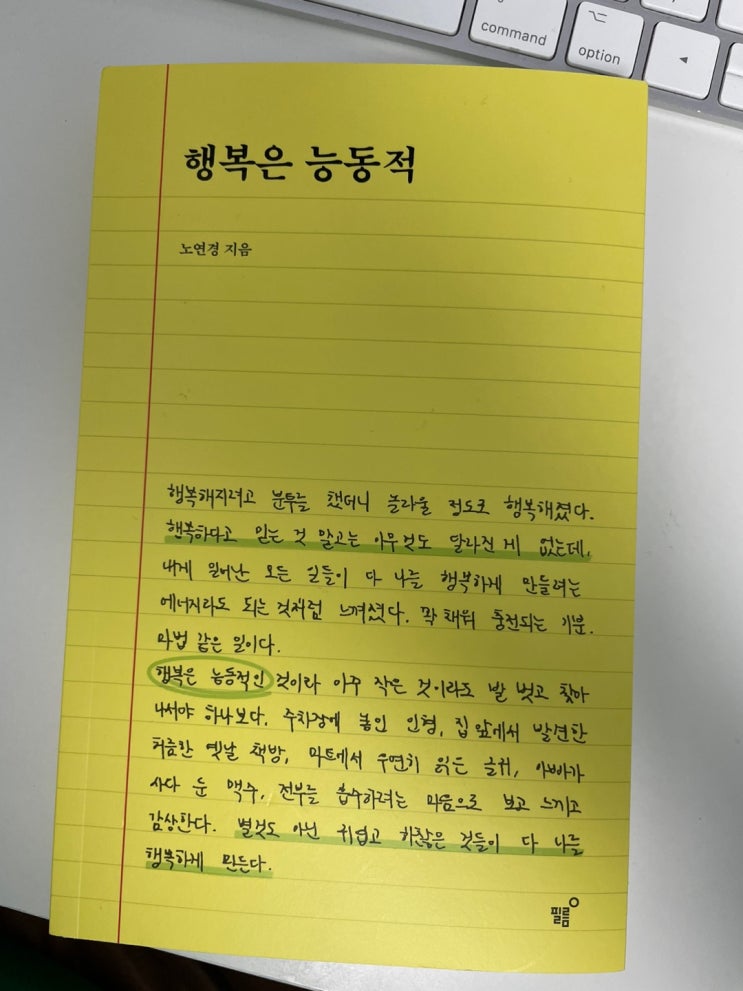 command
⌥
option
◄
행복은 능동적
노연경 지음
행복해지려고 분투를 했더니 놀라울 정도로 행복해졌다.
행복하다고 믿는 것 말고는 아무것도 달라진 게 없는데,
내게 일어난 모든 일들이 다 나를 행복하게 만들려는
에너지라도 되는 것처럼 느껴졌다. 꽉 채워 충전되는 기분.
마법 같은 일이다.
행복은 능동적인 것이라 아주 작은 것이라도 발 벗고 찾아
나서야 하나보다. 주차장에 놓인 인형, 집 앞에서 발견한
허름한 옛날 책방, 마트에서 우연히 읽은 글귀, 아빠가
사다 둔 맥주, 전부를 흡수하려는 마음으로 보고 느끼고
감상한다. 별것도 아닌 귀엽고 하찮은 것들이 다 나를
행복하게 만든다.
필름